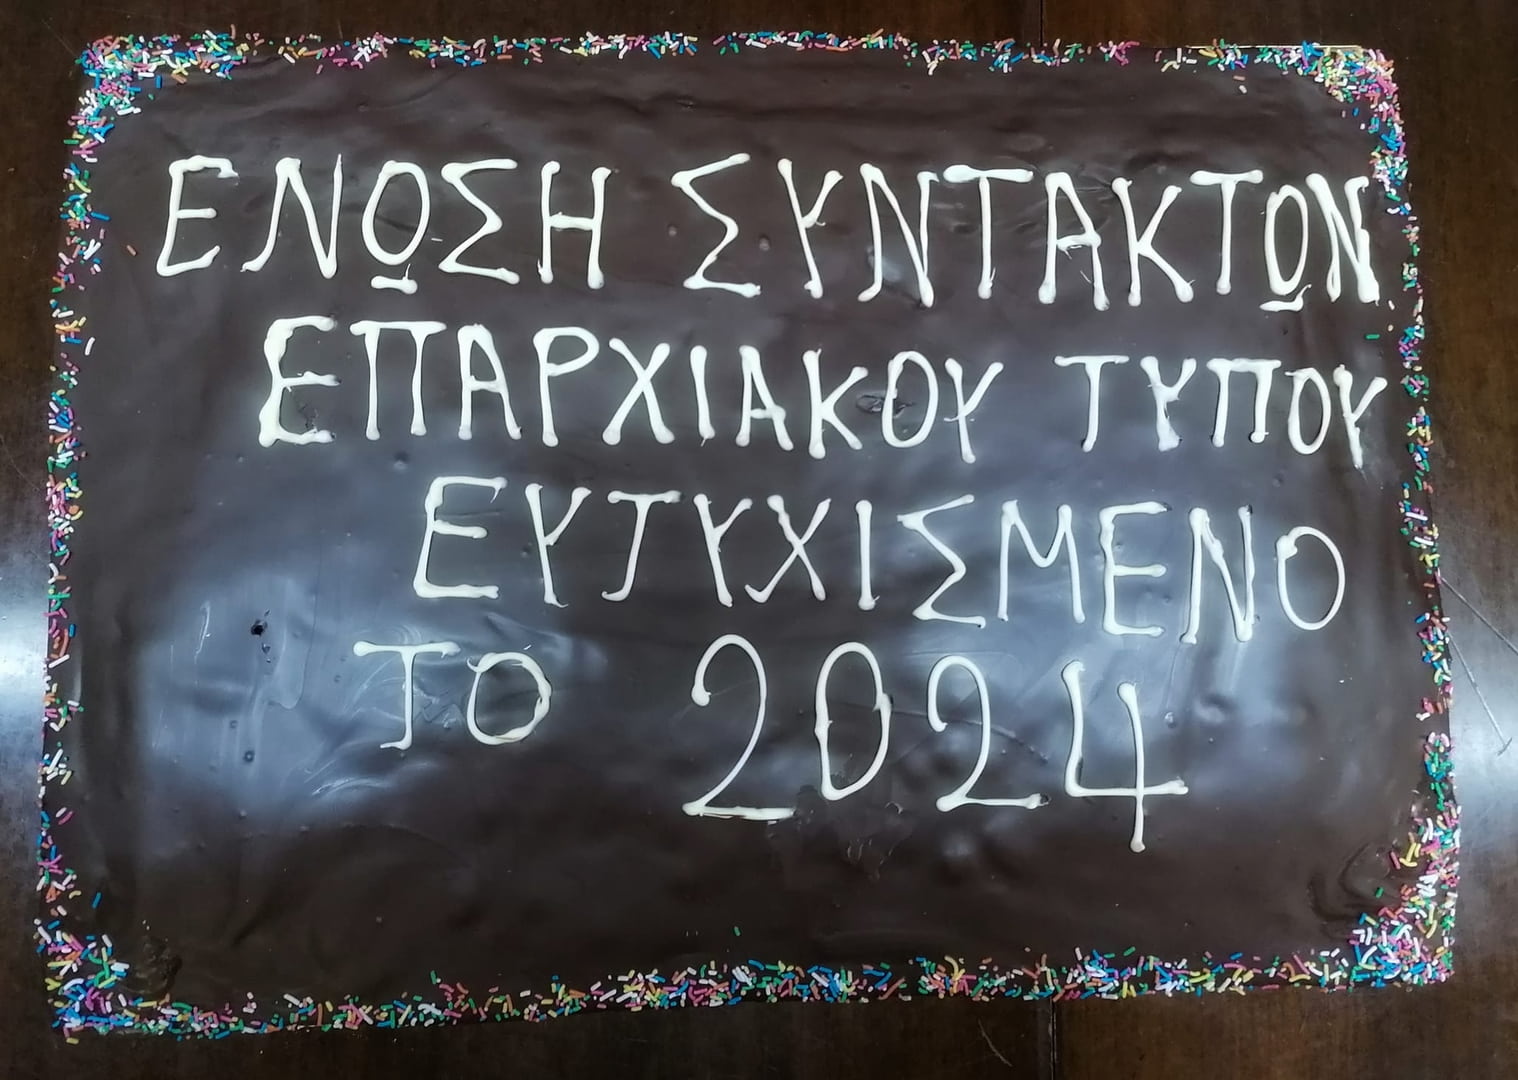 ΕΝΩΣΗ ΣΥΝΤΑΚΤΩΝ
ΕΠΑΡΧΙΑΚΟΥ ΤΥΠΟΥ
ΕΥΤΥΧΙΣΜΕΝΟ
ΤΟ 2024